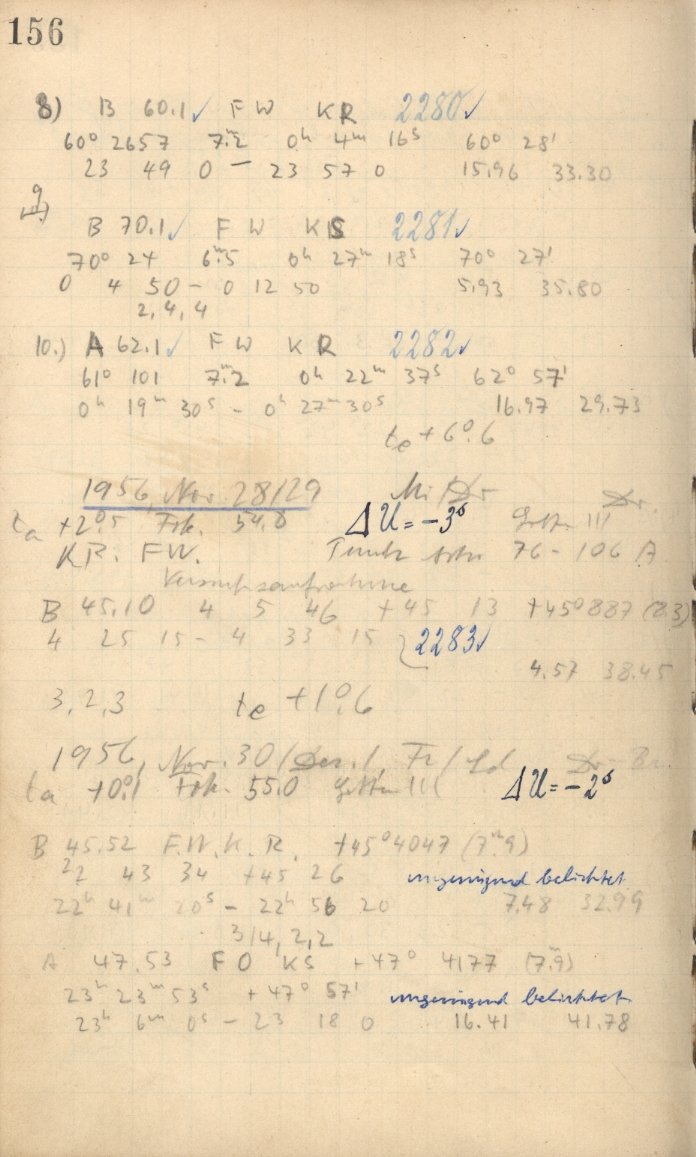 156
8) B 60.1✓ F W KR 2280✓
60° 2657 7ᵐ.2 0ʰ 4ᵐ 16ˢ 60° 28'
23 49 0 – 23 57 0 15.96 33.30
9)
B 70.1✓ F W KS 2281✓
70° 24 6ᵐ.5 0ʰ 27ᵐ 18ˢ 70° 27'
0 4 50 – 0 12 50 5.93 35.80
2, 4, 4
10.) A 62.1✓ F W KR 2282✓
61° 101 7ᵐ.2 0ʰ 22ᵐ 37ˢ 62° 57'
0ʰ 19ᵐ 30ˢ – 0ʰ 27ᵐ 30ˢ 16.97 29.73
te +6°.6
1956, Nov. 28/29 Mi/Do Dr.
ta +2°.5 Fok. 54.8 ΔU = –3ˢ III
KR. FW. 76 – 106 A
Versuchsaufnahme
B 45.10 4 5 46 +45 13 +45°887 (8.3)
4 25 15 – 4 33 15 2283✓
4.57 38.45
3, 2, 3 te +1°.6
1956, Nov. 30/Dez. 1, Fr/Sd Dr.
ta +0.1 Fok. 55.0 III ΔU = –2ˢ
B 45.52 F.W. K.R. +45°4047 (7ᵐ.9)
22 43 34 +45 26 ungenügend belichtet
22ʰ 41ᵐ 20ˢ – 22ʰ 56 20 7.48 32.99
3/4, 2, 2
A 47.53 F O KS +47° 4177 (7ᵐ.9)
23ʰ 23ᵐ 53ˢ +47° 57' ungenügend belichtet
23ʰ 6ᵐ 0ˢ – 23 18 0 16.41 41.78